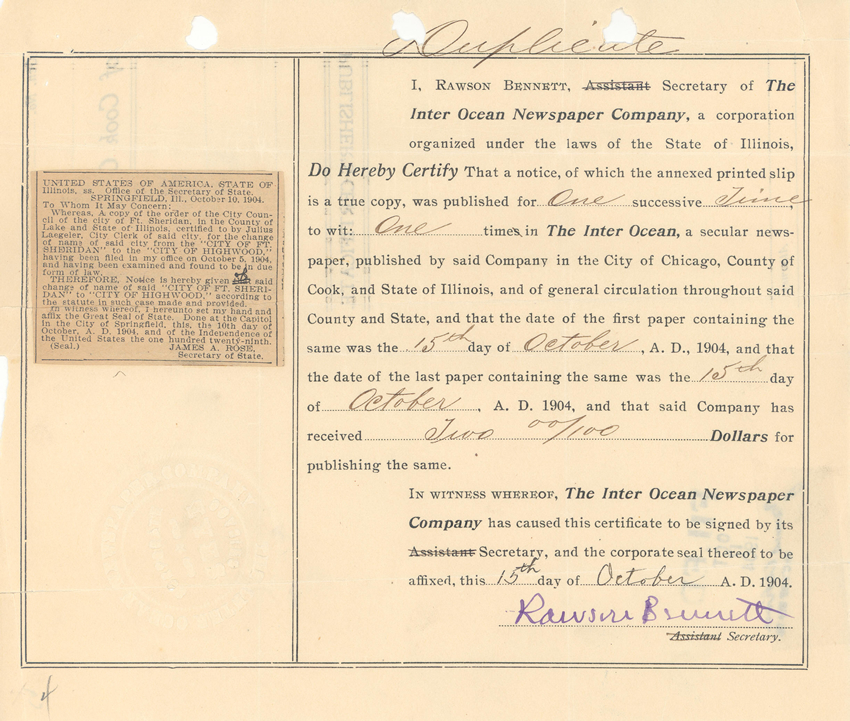 Duplicate
UNITED STATES OF AMERICA, STATE OF
Illinois, ss. Office of the Secretary of State.
SPRINGFIELD, Ill., October 10, 1904.
To Whom It May Concern:
Whereas, A copy of the order of the City Coun-
cil of the city of Ft. Sheridan, in the County of
Lake and State of Illinois, certified to by Julius
Laegeler, City Clerk of said city, for the change
of name of said city from the "CITY OF FT.
SHERIDAN" to the "CITY OF HIGHWOOD,"
having been filed in my office on October 5, 1904,
and having been examined and found to be in due
form of law.
THEREFORE, Notice is hereby given said
change of name of said "CITY OF FT. SHERI-
DAN" to "CITY OF HIGHWOOD," according to
the statute in such case made and provided.
In witness whereof, I hereunto set my hand and
affix the Great Seal of State. Done at the Capitol
in the City of Springfield, this, the 10th day of
October, A. D. 1904, and of the Independence of
the United States the one hundred twenty-ninth.
(Seal.) JAMES A. ROSE,
Secretary of State.
I, RAWSON BENNETT, Assistant Secretary of The
Inter Ocean Newspaper Company, a corporation
organized under the laws of the State of Illinois,
Do Hereby Certify That a notice, of which the annexed printed slip
is a true copy, was published for One successive Time,
to wit: One times, in The Inter Ocean, a secular news-
paper, published by said Company in the City of Chicago, County of
Cook, and State of Illinois, and of general circulation throughout said
County and State, and that the date of the first paper containing the
same was the 15th day of October, A. D., 1904, and that
the date of the last paper containing the same was the 15th day
of October, A. D. 1904, and that said Company has
received Two 00/100 Dollars for
publishing the same.
IN WITNESS WHEREOF, The Inter Ocean Newspaper
Company has caused this certificate to be signed by its
Assistant Secretary, and the corporate seal thereof to be
affixed, this 15th day of October A. D. 1904.
Rawson Bennett
Assistant Secretary.